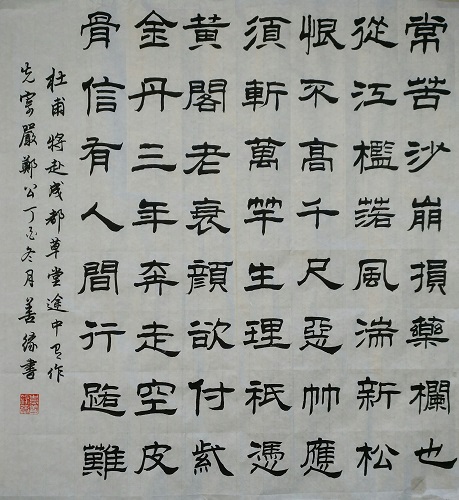 常苦沙崩損藥欄也
從江檻落風湍新松
恨不高千尺惡竹應
須斬萬竿生理祇憑
黃閣老衰顏欲付紫
金丹三年奔走空皮
骨信有人間行路難
杜甫將赴成都草堂途中有作
先寄嚴鄭公丁酉冬月善緣書